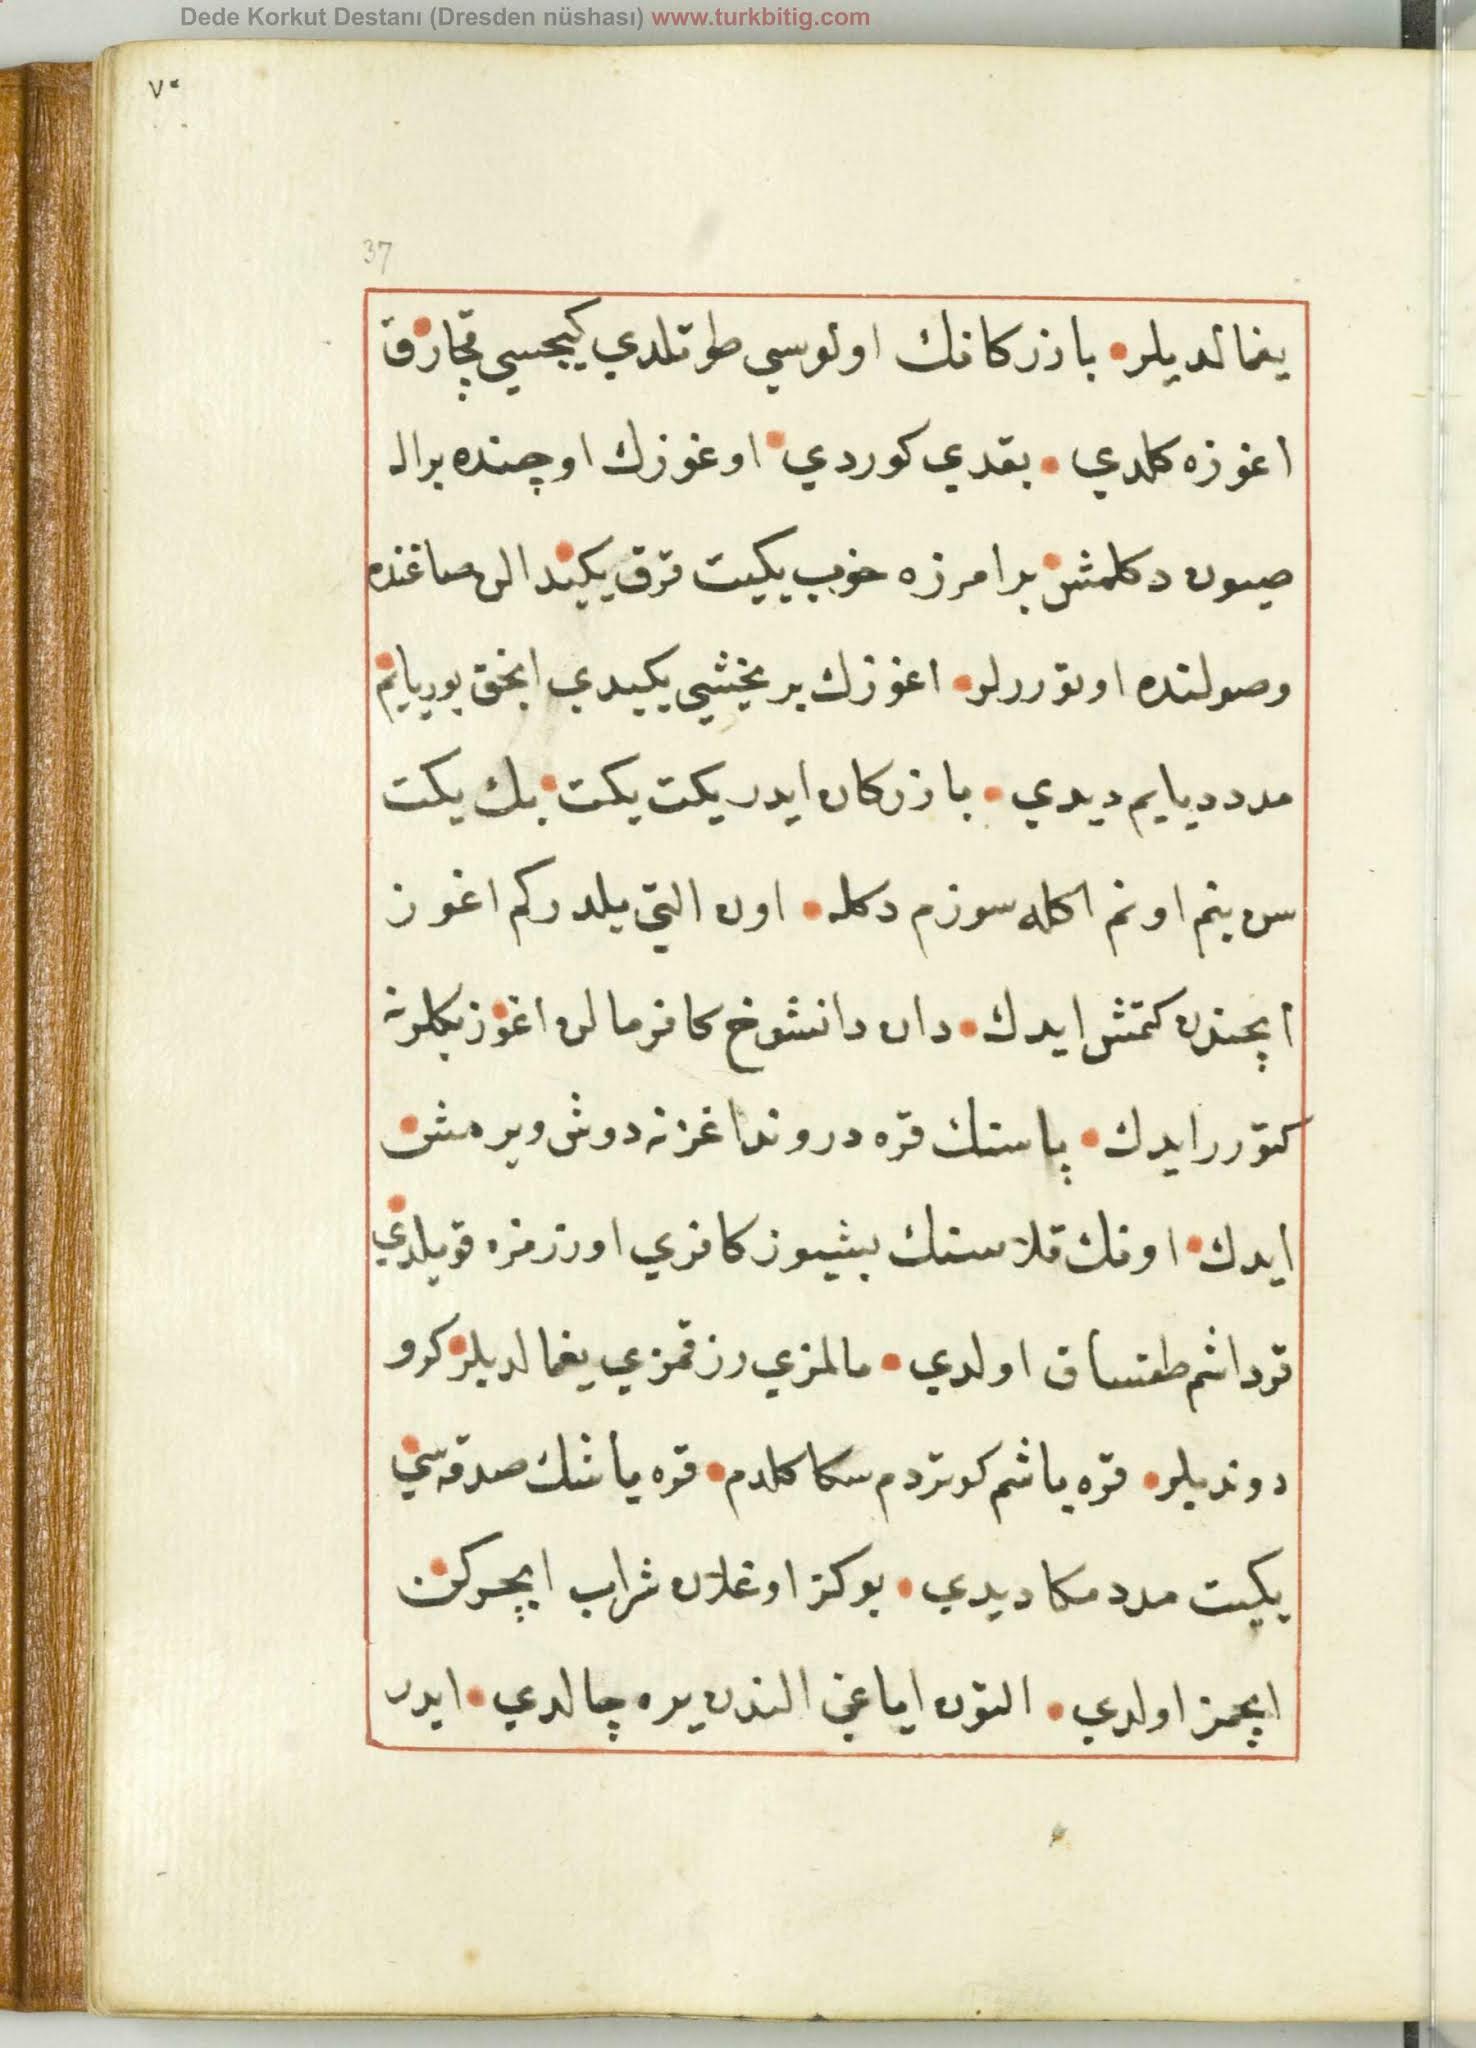 Dede Korkut Destanı (Dresden nüshası) www.turkbitig.com
٧٠
37
يغمالديلر • بازركانك اولوسي طوتلدي كيجيسي قچارق
اغوزه كلدي • بقدي كوردي • اوغوزك اوچنده براله
صيون دكلمش • برامرزه خوب يكيت قرق يكيد الن صاغنده
وصولنده اوتوررلر • اغوزك بر يخشي يكيدي ايخق بوريايم
مدد ديايم ديدي • بازركان ايدر يكت يكت • بك يكت
سن بنم اونم اكله سوزم دكله • اون التي يلدركم اغوز
ايچندن كتمش ايدك • دان دانشوخ كافر مالن اغوز بكلرنه
كتورر ايدك • پاسنك قره دروند اغزنه دوش ويرمش
ايدك • اونك قلاسنك بشيوز كافري اوزرمزه قويلدي •
قرداشم طتساق اولدي • مالمزي رزقمزي يغمالديلر • كرو
دونديلر • قره باشم كوتردم سكا كلدم • قره باشك صدقه سي •
يكيت مدد مكا ديدي • بوكز اوغلان شراب ايچركن •
ايچمز اولدي • التون اياغي الندن يره چالدي • ايدر